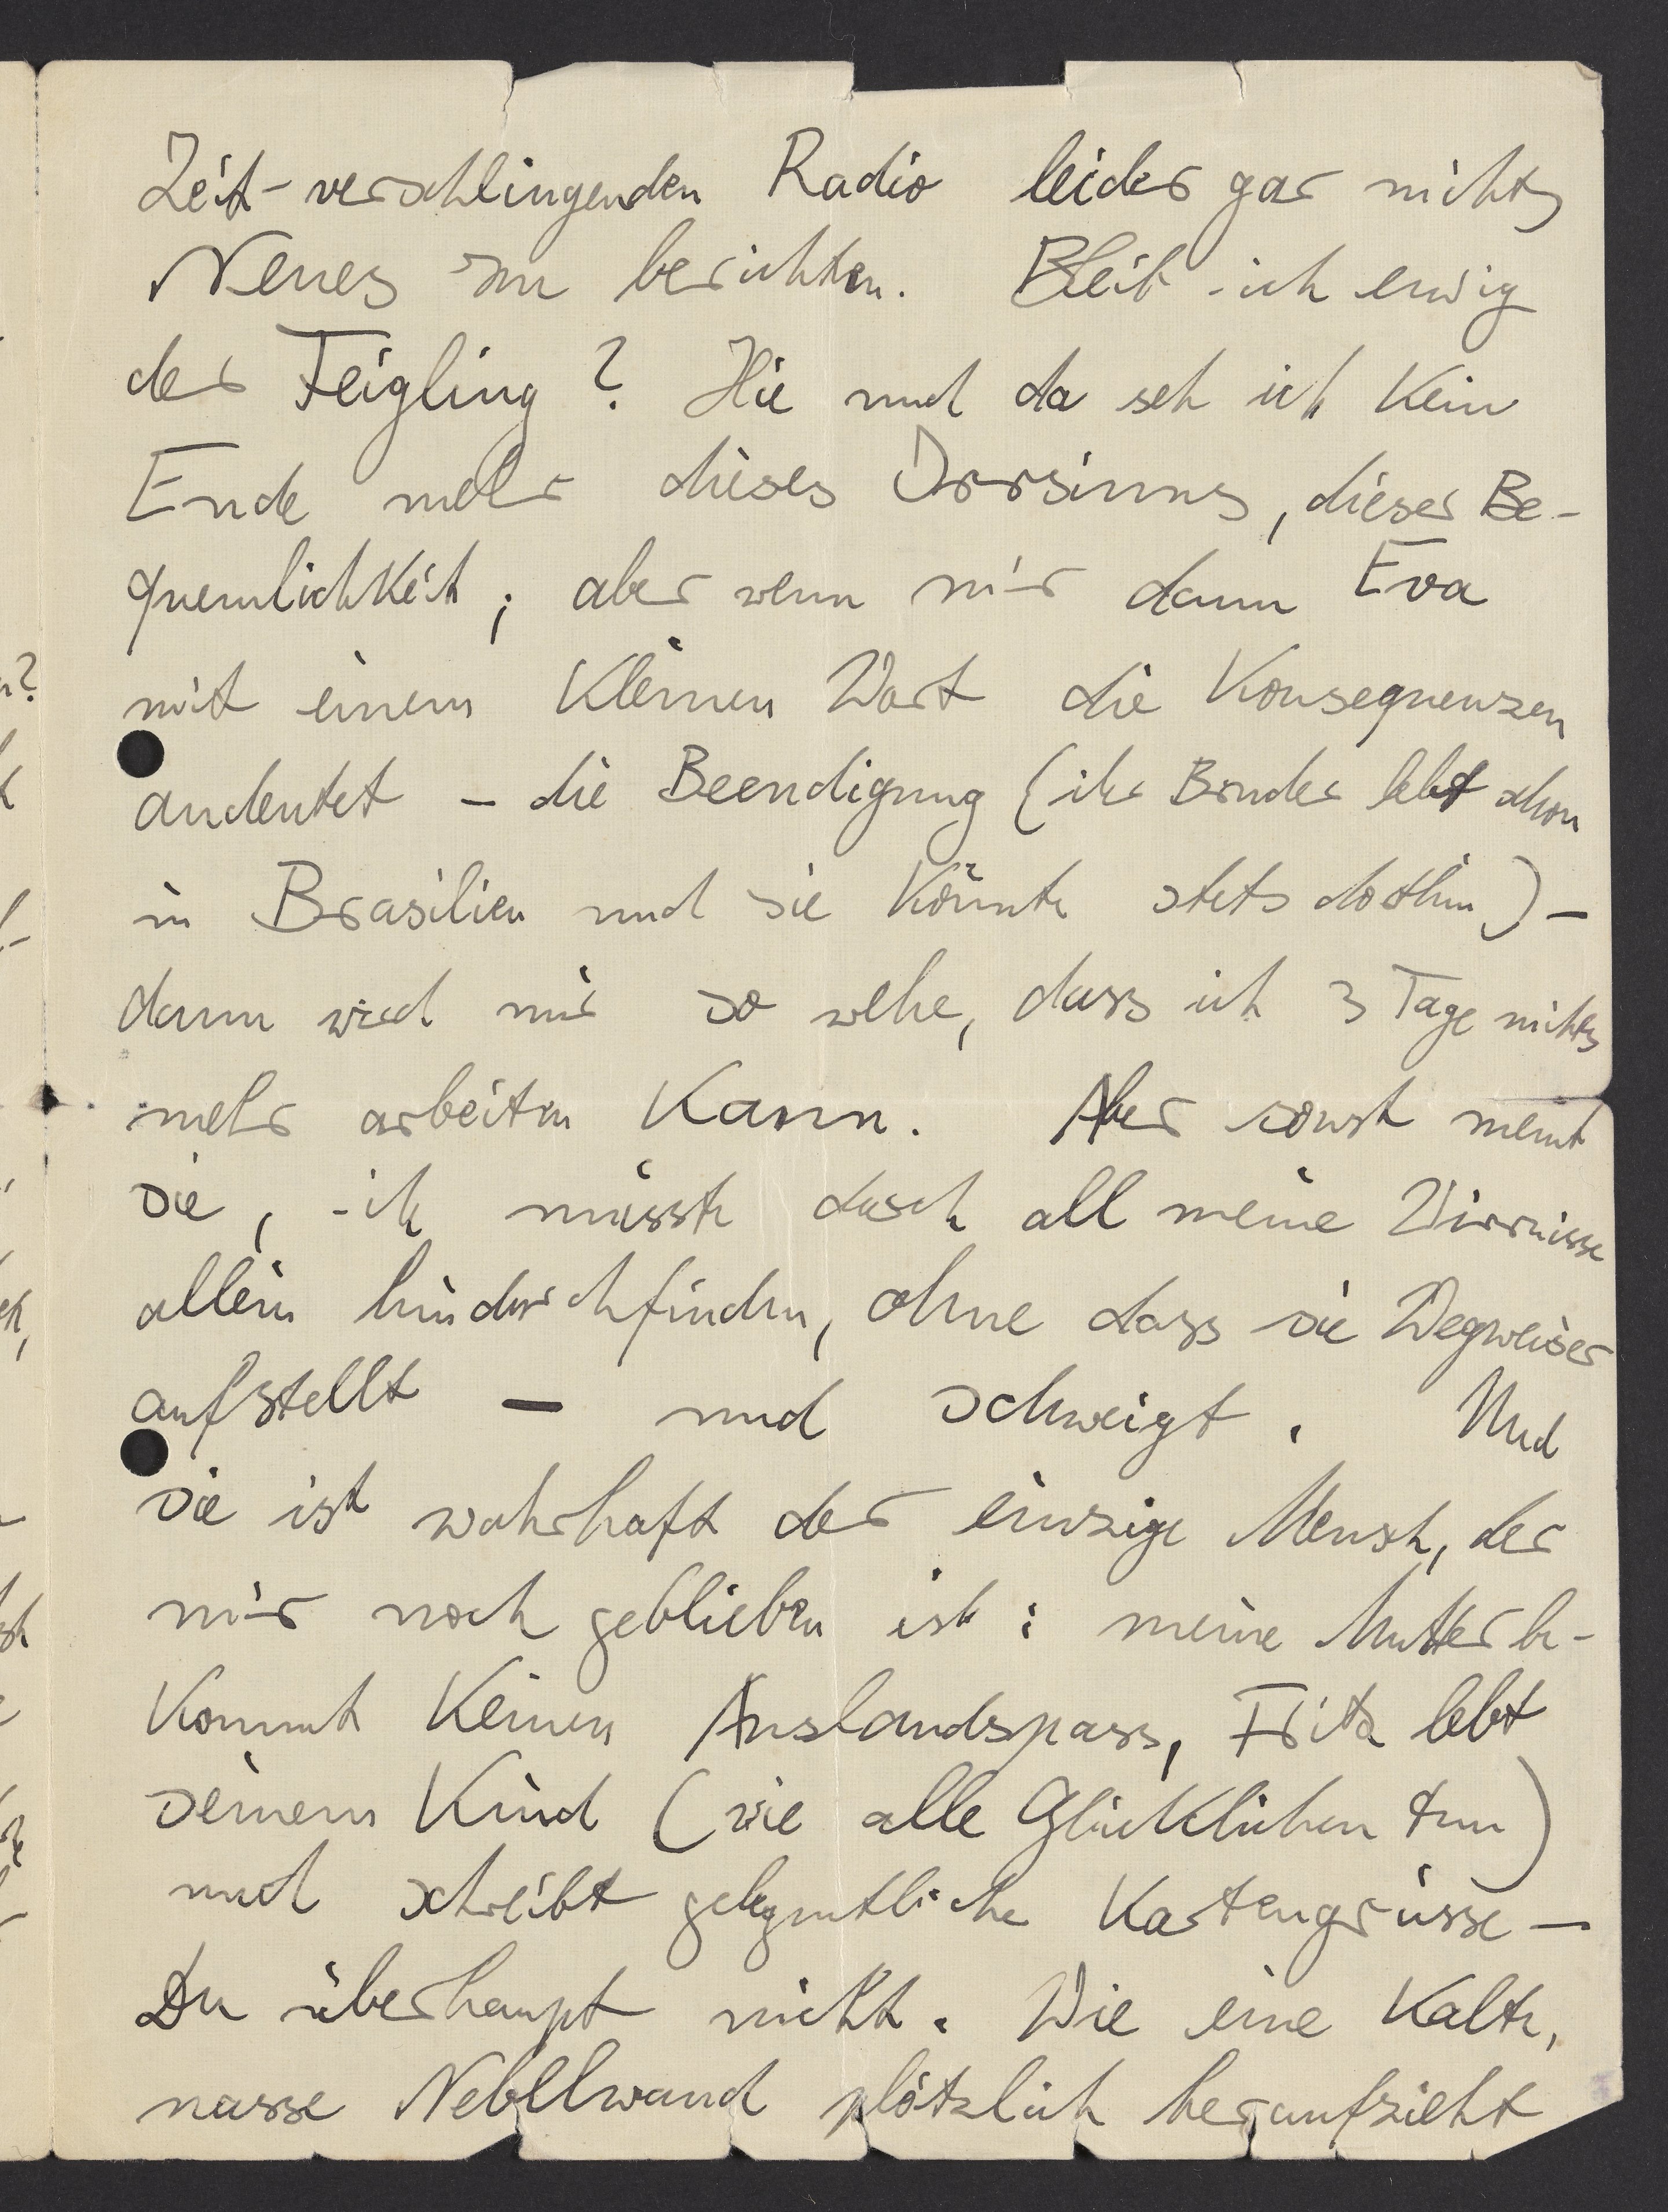 Zeit-verschlingenden Radio leider gar nichts
Neues zu berichten. Bleib ich ewig
der Feigling? Hie und da seh ich kein
Ende mehr dieses Irrsinns, dieser Be-
quemlichkeit; aber wenn mir dann Eva
mit einem kleinen Wort die Konsequenzen
andeutet – die Beendigung (ihr Bruder lebt schon
in Brasilien und sie könnte stets dorthin) –
dann wird mir so wehe, dass ich 3 Tage nichts
mehr arbeiten kann. Aber sonst meint
sie, ich müsste durch all meine Wirrnisse
allein hindurchfinden, ohne dass sie Wegweiser
aufstellt – und schweigt. Und
sie ist wahrhaft der einzige Mensch, der
mir noch geblieben ist: meine Mutter be-
kommt keinen Auslandspass, Fritz lebt
seinem Kind (wie alle Glücklichen tun)
und schreibt gelegentliche Kartengrüsse –
Du überhaupt nicht. Wie eine kalte,
nasse Nebelwand plötzlich heraufzieht